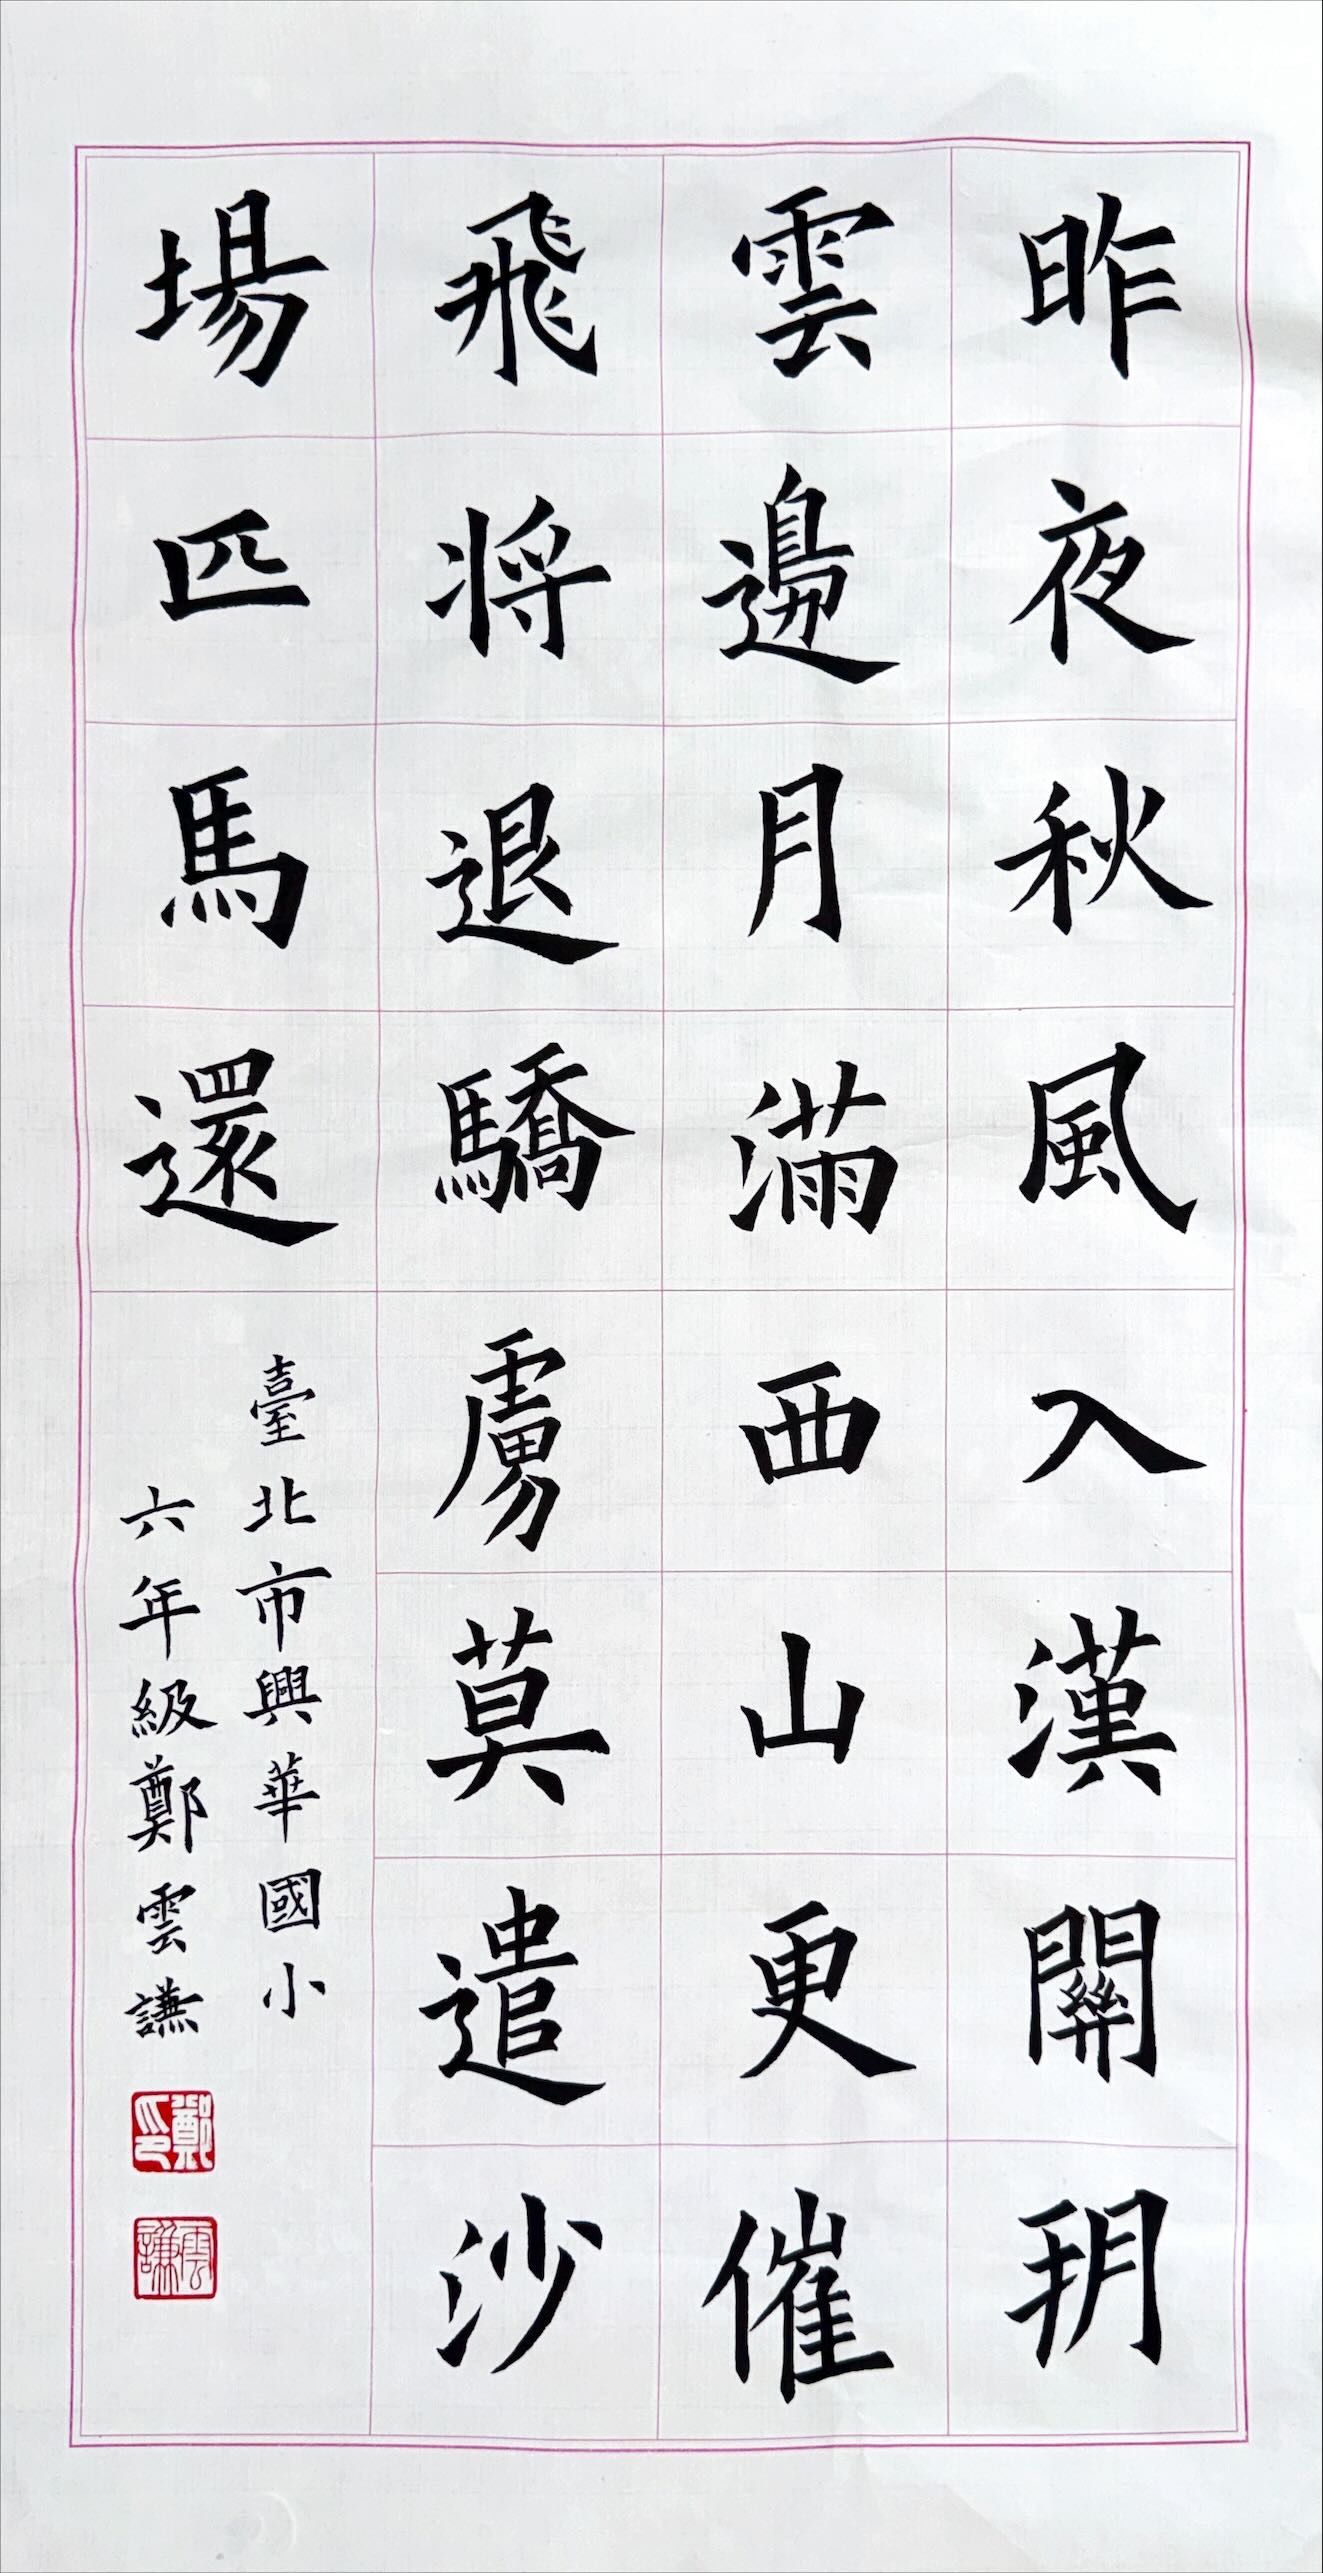 昨夜秋風入漢關玥
雲邊月滿西山更催
飛将退驕虜莫遣沙
場匹馬還
臺北市興華國小
六年級鄭雲謙
鄭印
雲謙